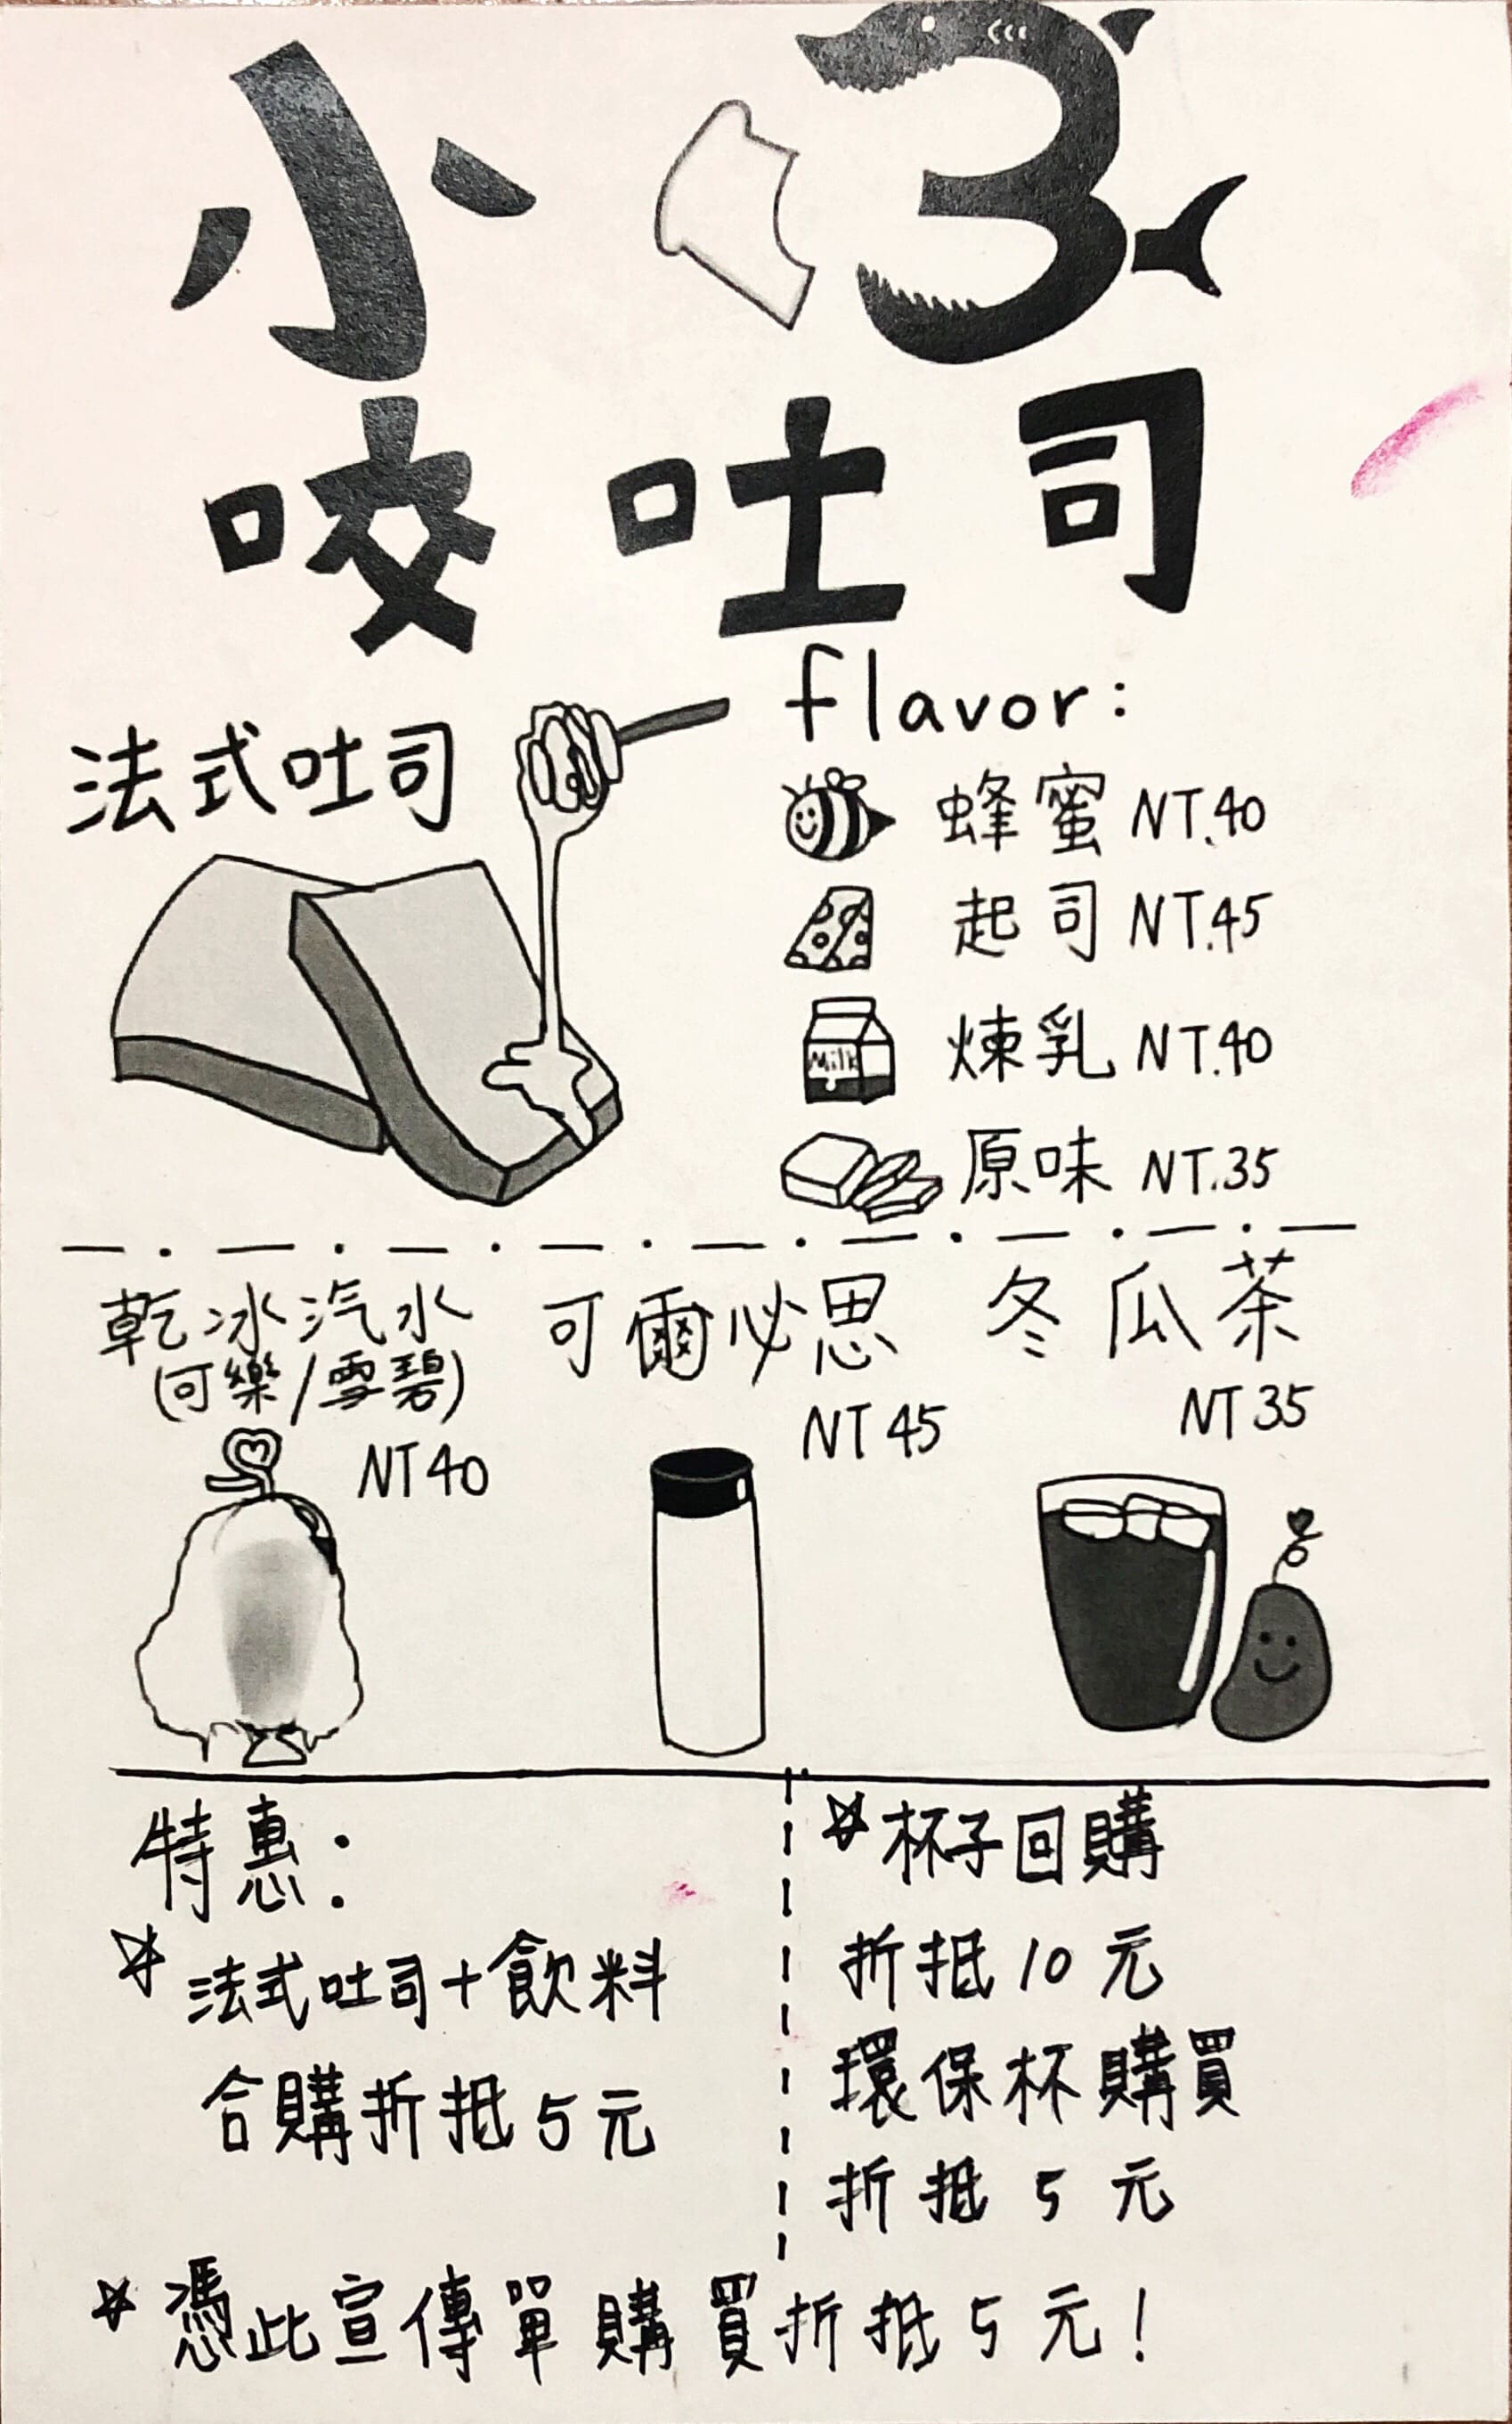 小3
咬吐司
法式吐司
flavor:
蜂蜜 NT.40
起司 NT.45
Milk
煉乳 NT.40
原味 NT.35
乾冰汽水
(可樂/雪碧)
NT 40
可爾必思
NT 45
冬瓜茶
NT 35
特惠:
☆ 法式吐司+飲料
合購折抵5元
☆ 杯子回購
折抵10元
環保杯購買
折抵5元
☆ 憑此宣傳單購買折抵5元!